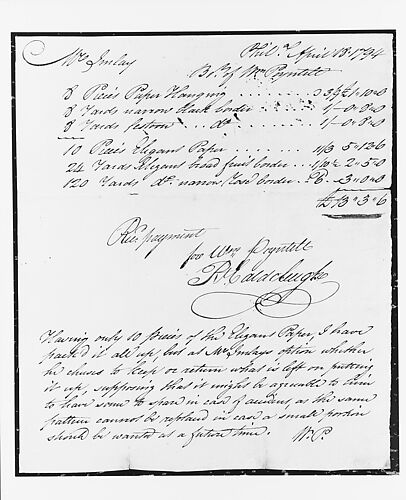 Phila. April 18. 1794
Mr. Imlay
Bt. of Wm Poyntell
8 Pieces Paper Hanging 3/9 £1"10"0
8 Yards narrow black border 1/- 0"8"0
8 Yards festoon do. 1/- 0"8"0
10 Pieces Elegant Paper 11/3 5"12"6
24 Yards Elegant broad fruit border 1/10½ 2"5"0
120 Yards do. narrow rose border 6 3"0"0
£13"3"6
Rec. payment
for Wm Poyntell
R. Caldcleugh
Having only 10 pieces of the Elegant Paper, I have
packed it all up, but at Mr Imlays option whether
he chuses to keep or return what is left on putting
it up, supposing that it might be agreeable to him
to have some to spare in case of accident, as the same
pattern cannot be replaced in case a small portion
should be wanted at a future time. W. P.